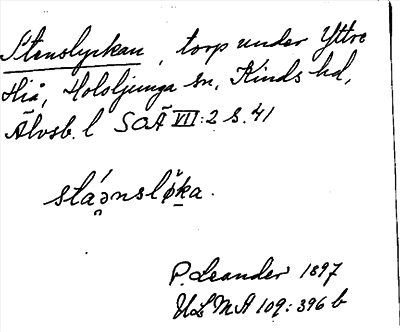 Stenslyckan, torp under Yttre
Hiå, Hololjunga sn, Kinds hd,
Älvsb. l SOÄ VII:2 s. 41
staənsløka.
P. Leander 1897
ULMA 109:396 b